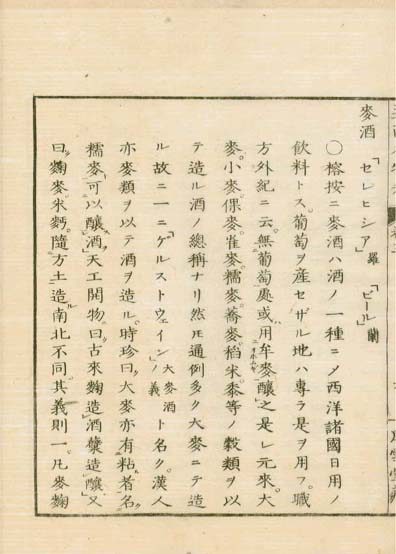 麥酒「セレヒシア」羅「ビール」蘭
〇榕按ニ麥酒ハ酒ノ一種ニメ西洋諸國日用ノ
飲料トス。葡萄ヲ産セザル地ハ專ラ是ヲ用フ。職
方外紀ニ云。無葡萄處或用牟麥釀之是レ元來大
麥。小麥。倮麥。雀麥。糯麥。蕎麥。稻米。黍。等ノ穀類ヲ以
テ造ル酒ノ總稱ナリ然𪜈通例多ク大麥ニテ造
ル故ニ一ニ「ゲルストウェイン」大麥酒ノ義ト名ク。漢人
亦麥類ヲ以テ酒ヲ造ル。時珍曰大麥亦有粘者名
糯麥。可以釀酒。天工開物曰古來麴造酒糵造釀又
曰麴麥。米麪。隨方土造。南北不同。其義則一。凡麥麴